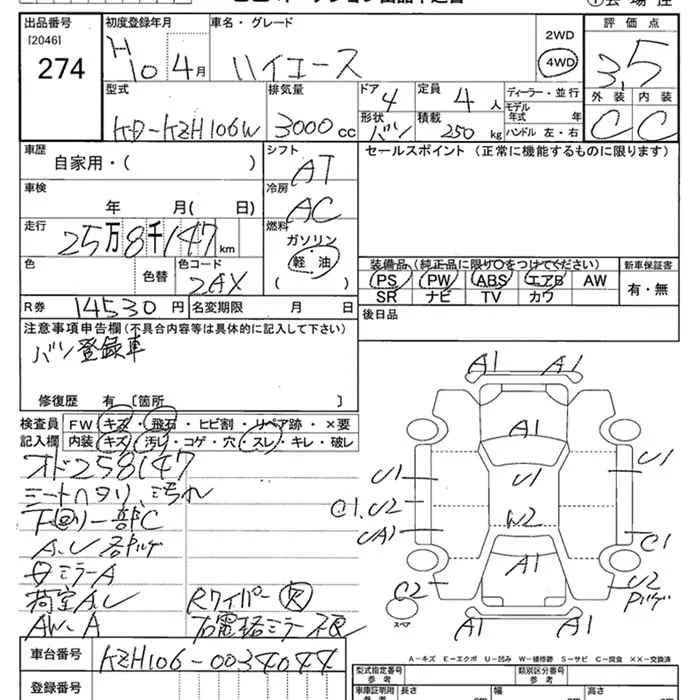 出品番号
[2046]
274
初度登録年月
H10 4月
車名・グレード
ハイエース
2WD
4WD
評価点
3.5
外装 内装
C C
型式
KD-KZH106W
排気量
3000cc
ドア
4
形状
バン
定員
4人
積載
250kg
ディーラー・並行
モデル年式 年
ハンドル 左・右
車歴
自家用・( )
シフト
AT
セールスポイント (正常に機能するものに限ります)
車検
年 月( 日)
冷房
AC
走行
25万8千147km
燃料
ガソリン
軽・油
( )
色
色替
色コード
2AX
装備品(純正品に限り○をつけてください)
PS PW ABS エアB AW
SR ナビ TV カワ
新車保証書
有・無
R券 14530円
名変期限 月 日
後日品
注意事項申告欄(不具合内容等は具体的に記入して下さい)
バン登録車
修復歴 有 [箇所 ]
検査員記入欄
FW キズ・飛石・ヒビ割・リペア跡・×要
内装 キズ・汚れ・コゲ・穴・スレ・キレ・破レ
オド258147
シートヘタリ、汚れ
下回り一部C
A.U 各所
ミラーA
荷室A.U
Rワイパー欠
AW.A
A1 A1
A1
U1 U1 U1
C1.U2
W2
UA1
C1
A1
C2
U2
スペア
A1 A1
A-キズ E-エクボ U-凹み W-補修跡 S-サビ C-腐食 ××-交換済
車台番号
KZH106-0034044
登録番号
型式指定番号
参考
類別区分番号
参考
車庫証明附
長さ
幅
高さ